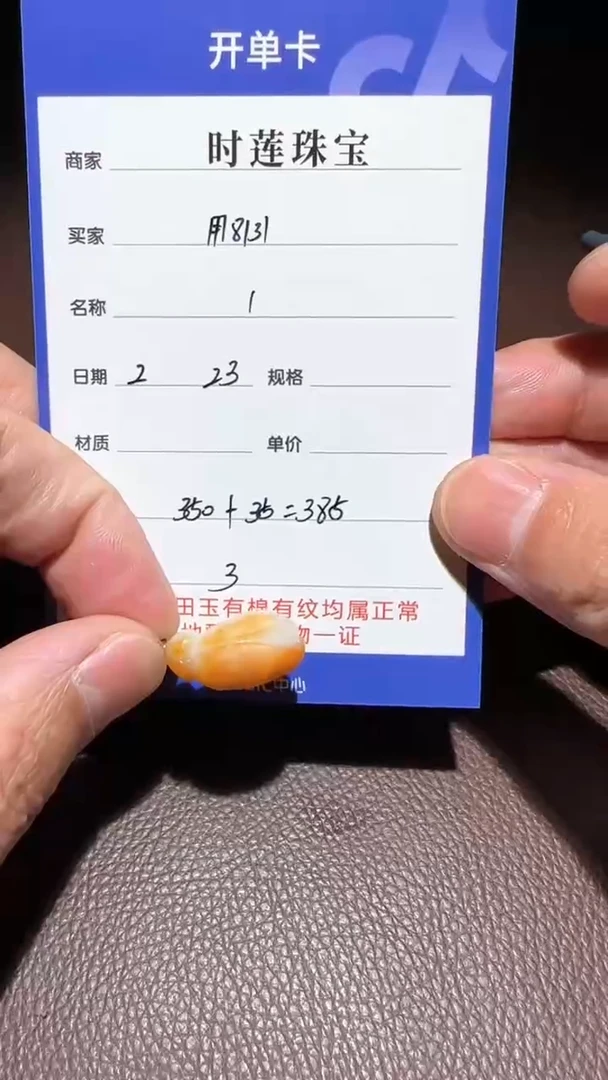 开单卡
商家 时莲珠宝
买家 用8131
名称 1
日期 2 23 规格
材质 单价
350+35=385
3
田玉有棉有纹均属正常
物一证
中心